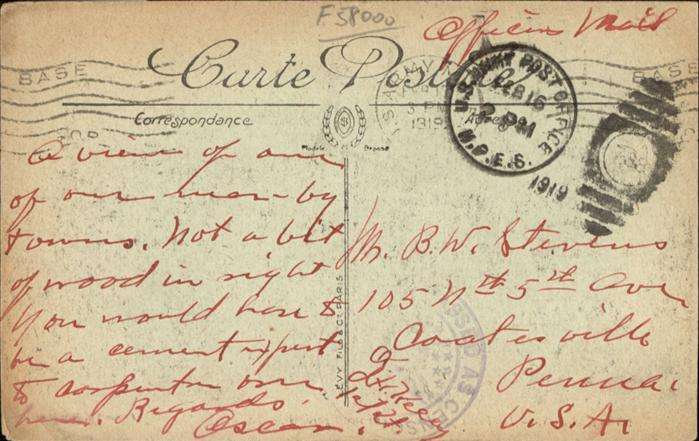 F58000
Officers Mail
Carte Postale
BASE
Correspondance
U.S. ARMY POST OFFICE
FEB 16
PM
M.P.E.S.
1919
A view of one
of our near-by
towns. Not a bit
of wood in sight
You would have to
be a cement expert
to carpenter over
here. Regards.
Oscar.
Mr. B. W. Stevens
105 Nth 5th Ave
Coatesville
Penna.
U.S.A.
LÉVY FILS & Cie PARIS
PASSED AS CENSORED